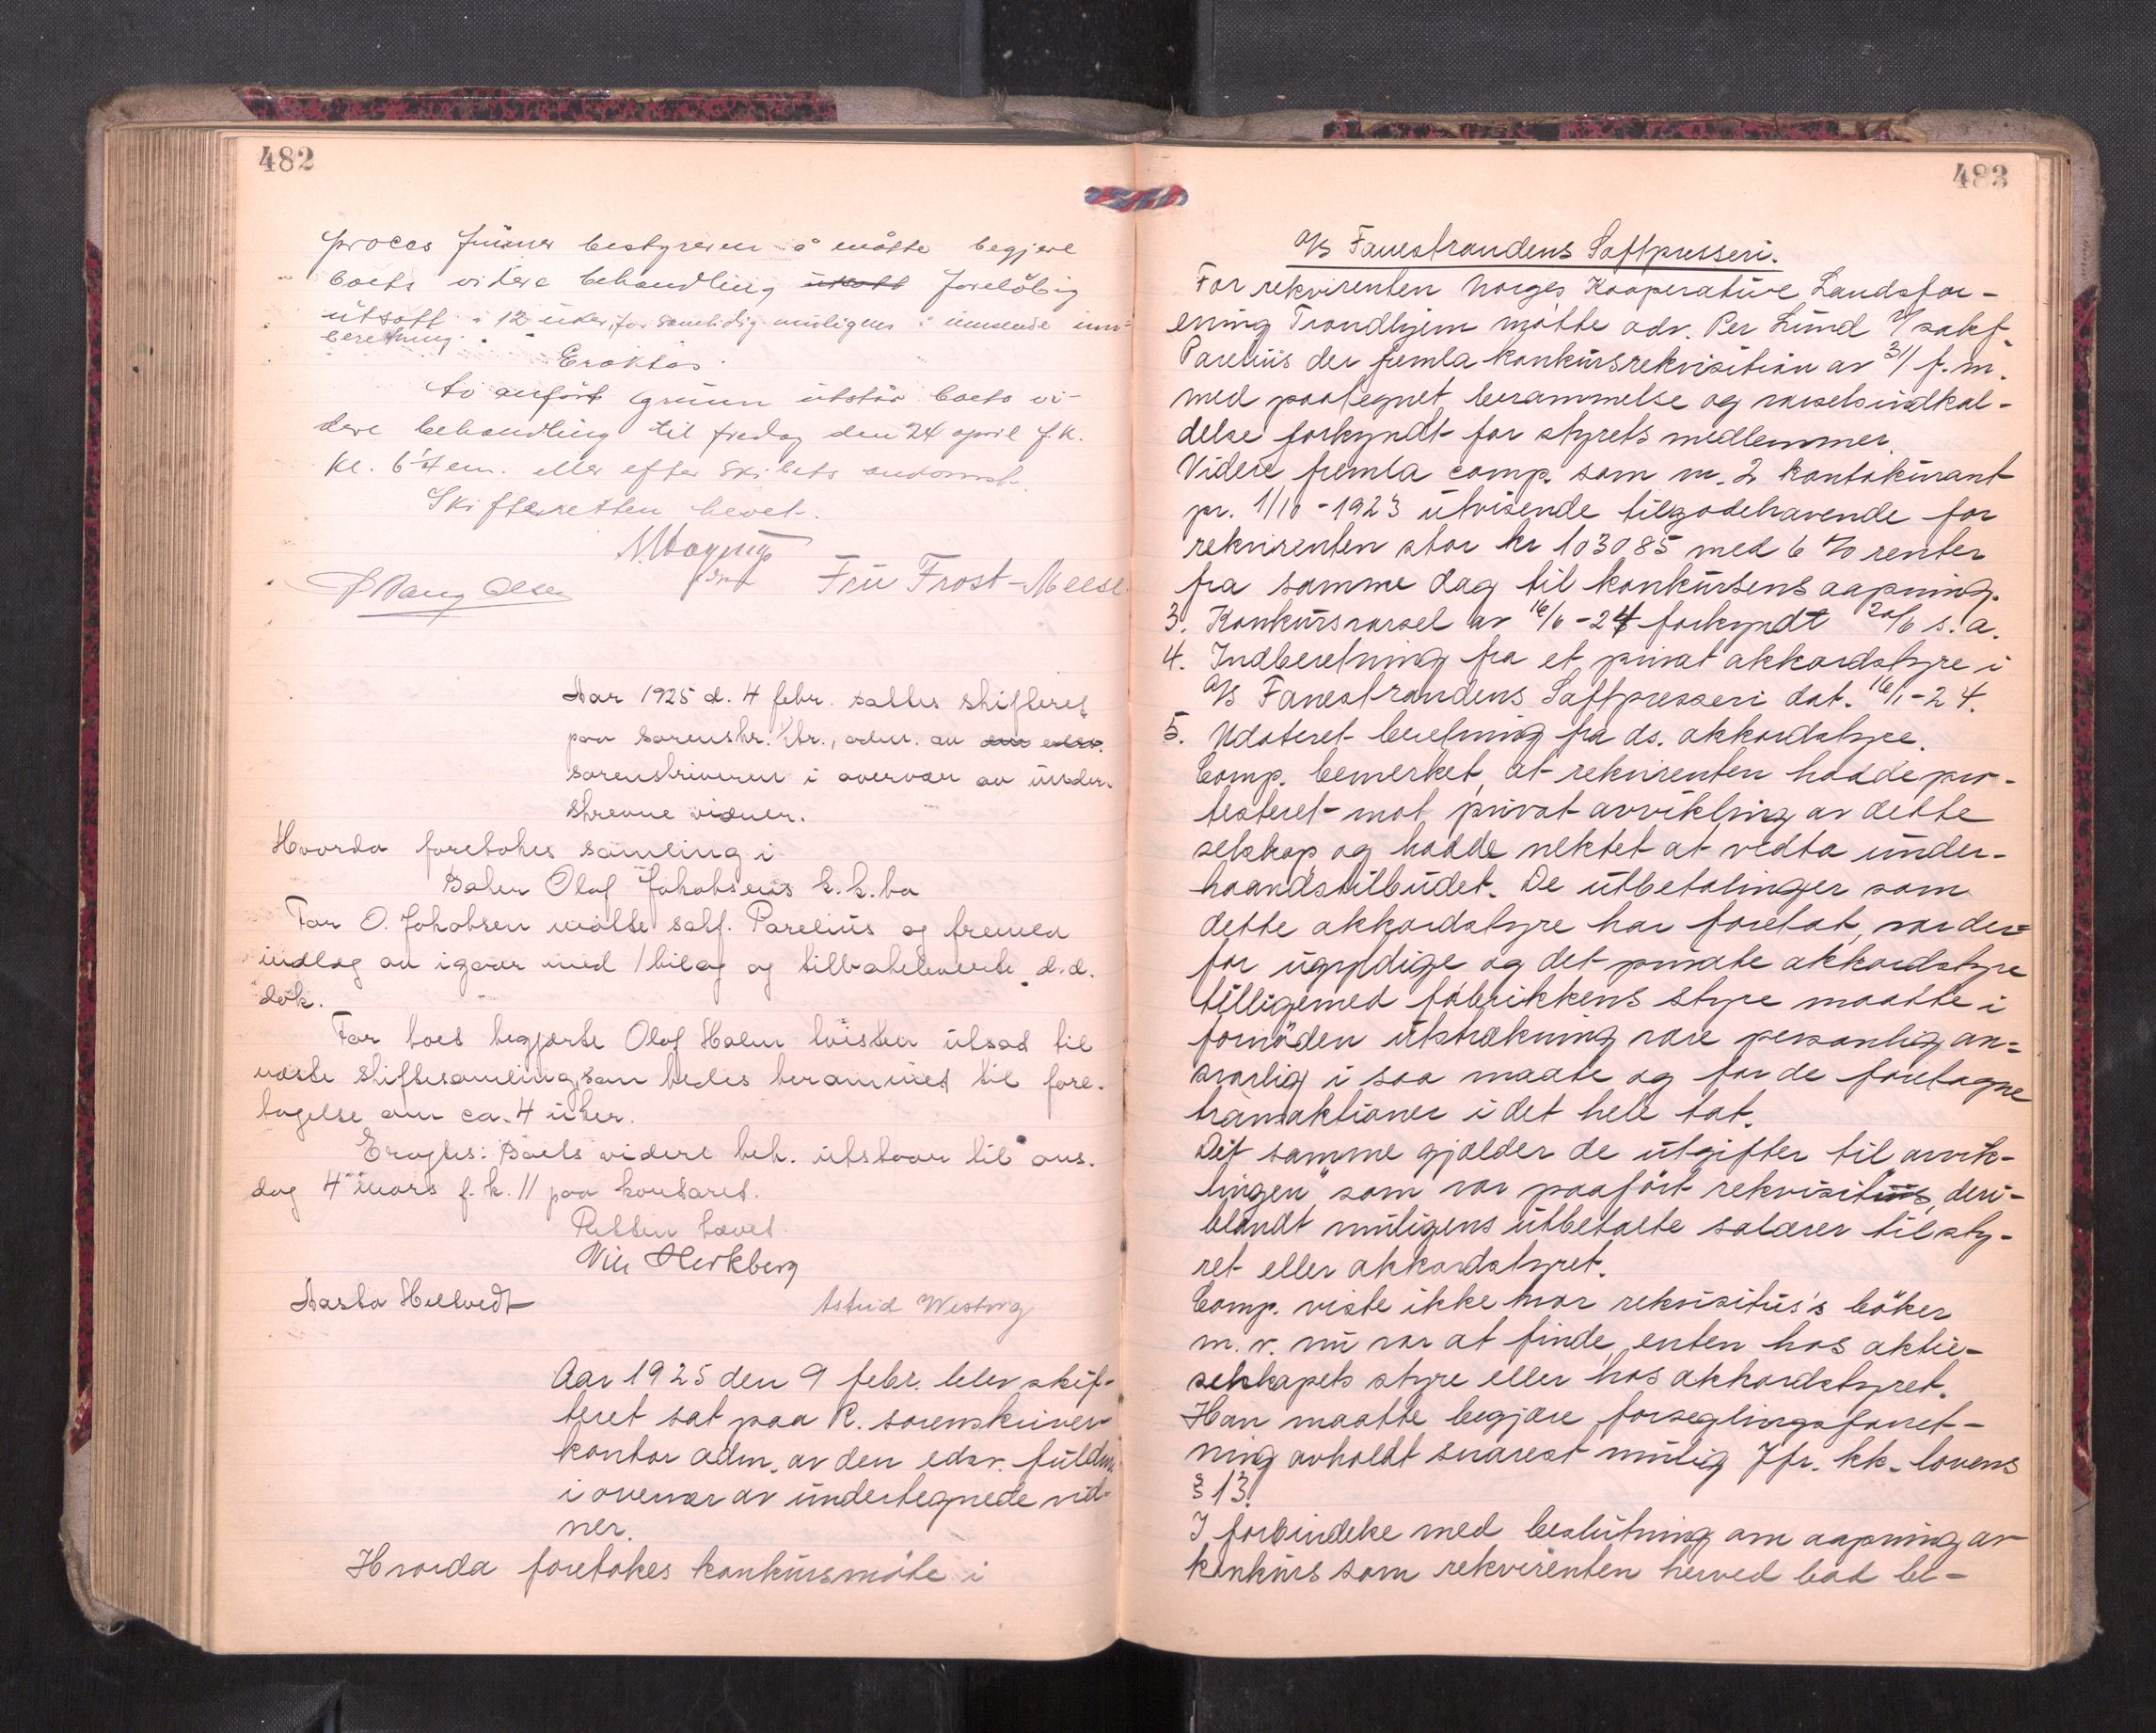 482
proces finner bestyreren å måtte begjere
boets videre behandling utsatt foreløbig
utsatt i 12 uker, for samtidig muligens i innsende inn-
beretning.
Eraktas
Av anført grunn utstår boets vi-
dere behandling til fredag den 24 april f.k.
kl. 6 em. eller efter skiftets
Skifteretten hevet.
Fru Frost-
Bang Olsen
Aar 1925 d. 4 febr. sattes skifteret
paa sorenskr. ktr., adm. av den edsv.
sorenskriveren i overvær av under-
skrevne vidner.
Hvorda foretokes samling i
Baker Olaf Jakobsens k.k.bo
For O. Jakobsen møtte sakf. Parelius og fremla
indlæg av igaar med 1 bilag og tilbakeleverte d.d.
dok.
For boet begjærte Olaf Holm tvisten utsat til
næste skiftesamling som bedes berammet til fore-
tagelse om ca. 4 uker.
Eragtes: Boets videre beh. utstaar til ons-
dag 4 mars f. k. 11 paa kontoret.
Retten hævet.
Nic Herkberg
Aasta Heltvedt
Astrid Westvig
Aar 1925 den 9 febr. blev skif-
teret sat paa R. sorenskriver-
kontor adm. av den edsv. fuldm.
i overvær av undertegnede vid-
ner.
Hvorda foretokes konkursmøte i
483
A/S Fanestrandens Saftpresseri.
For rekvirenten Norges Kooperative Landsfor-
ening Trondhjem møtte adv. Per Lund v/ sakf.
Parelius der fremla konkursrekvisition av 31/ f. m.
med paategnet berammelse og varselsindkal-
delse forkyndt for styrets medlemmer.
Videre fremla comp. som nr. 2 kontokurant
pr. 1/10 - 1923 utvisende tilgodehavende for
rekvirenten stor kr 1030 85 med 6 % renter
fra samme dag til konkursens aapning.
3. Konkursvarsel av 16/6 - 24 forkyndt 20/6 s. a.
4. Indberetning fra et privat akkordstyre i
A/S Fanestrandens Saftpresseri dat. 16/1 - 24.
5. Udateret beretning fra ds. akkordstyre.
Comp. bemerket, at rekvirenten hadde pro-
testeret mot privat avvikling av dette
selskap og hadde nektet at vedta under-
haandstilbudet. De utbetalinger som
dette akkordstyre har foretat, var der-
for ugyldige og det private akkordstyre
tilligemed fabrikkens styre maatte i
fornøden utstrækning være personlig an-
svarlig i saa maate og for de foretagne
transaktioner i det hele tat.
Det samme gjælder de utgifter til avvik-
lingen" som var paaført rekvisitus, deri-
blandt muligens utbetalte salærer til sty-
ret eller akkordstyret.
Comp. viste ikke hvor rekvisitus's bøker
m. v. nu var at finde, enten hos aktie-
selskapets styre eller hos akkordstyret.
Han maatte begjære forseglingsforret-
ning avholdt snarest mulig Jfr. kk. lovens
§ 13.
I forbindelse med beslutning om aapning av
konkurs som rekvirenten herved bad be-